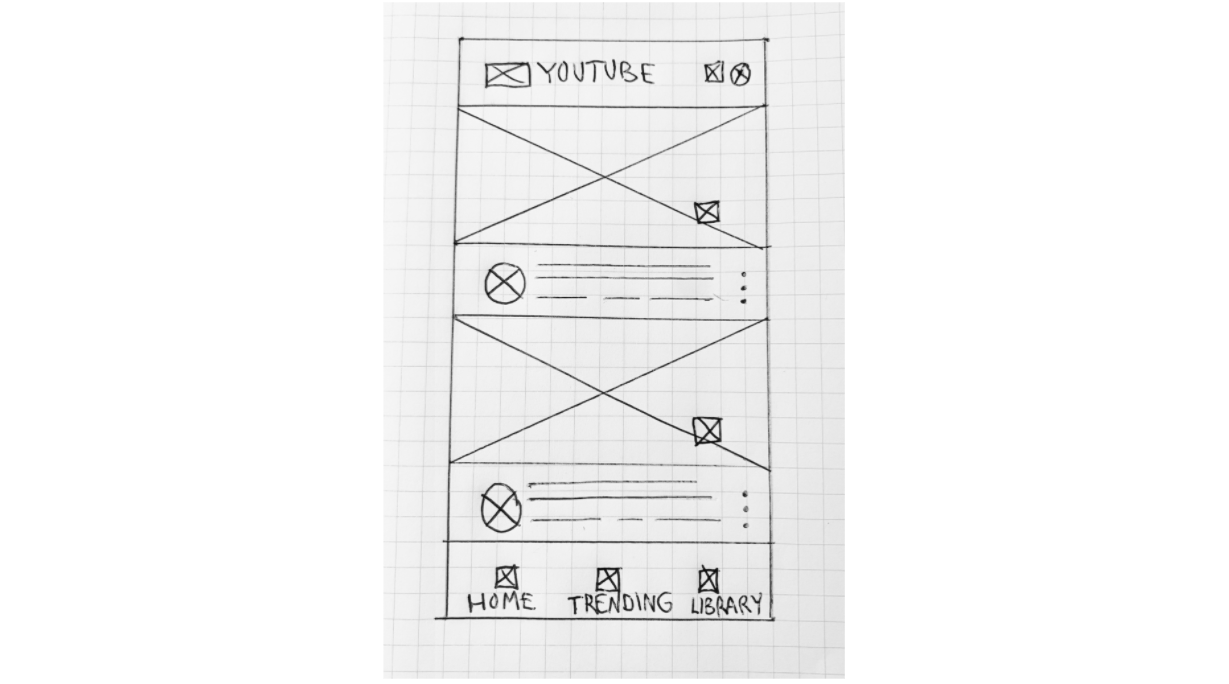 YOUTUBE
HOME TRENDING LIBRARY